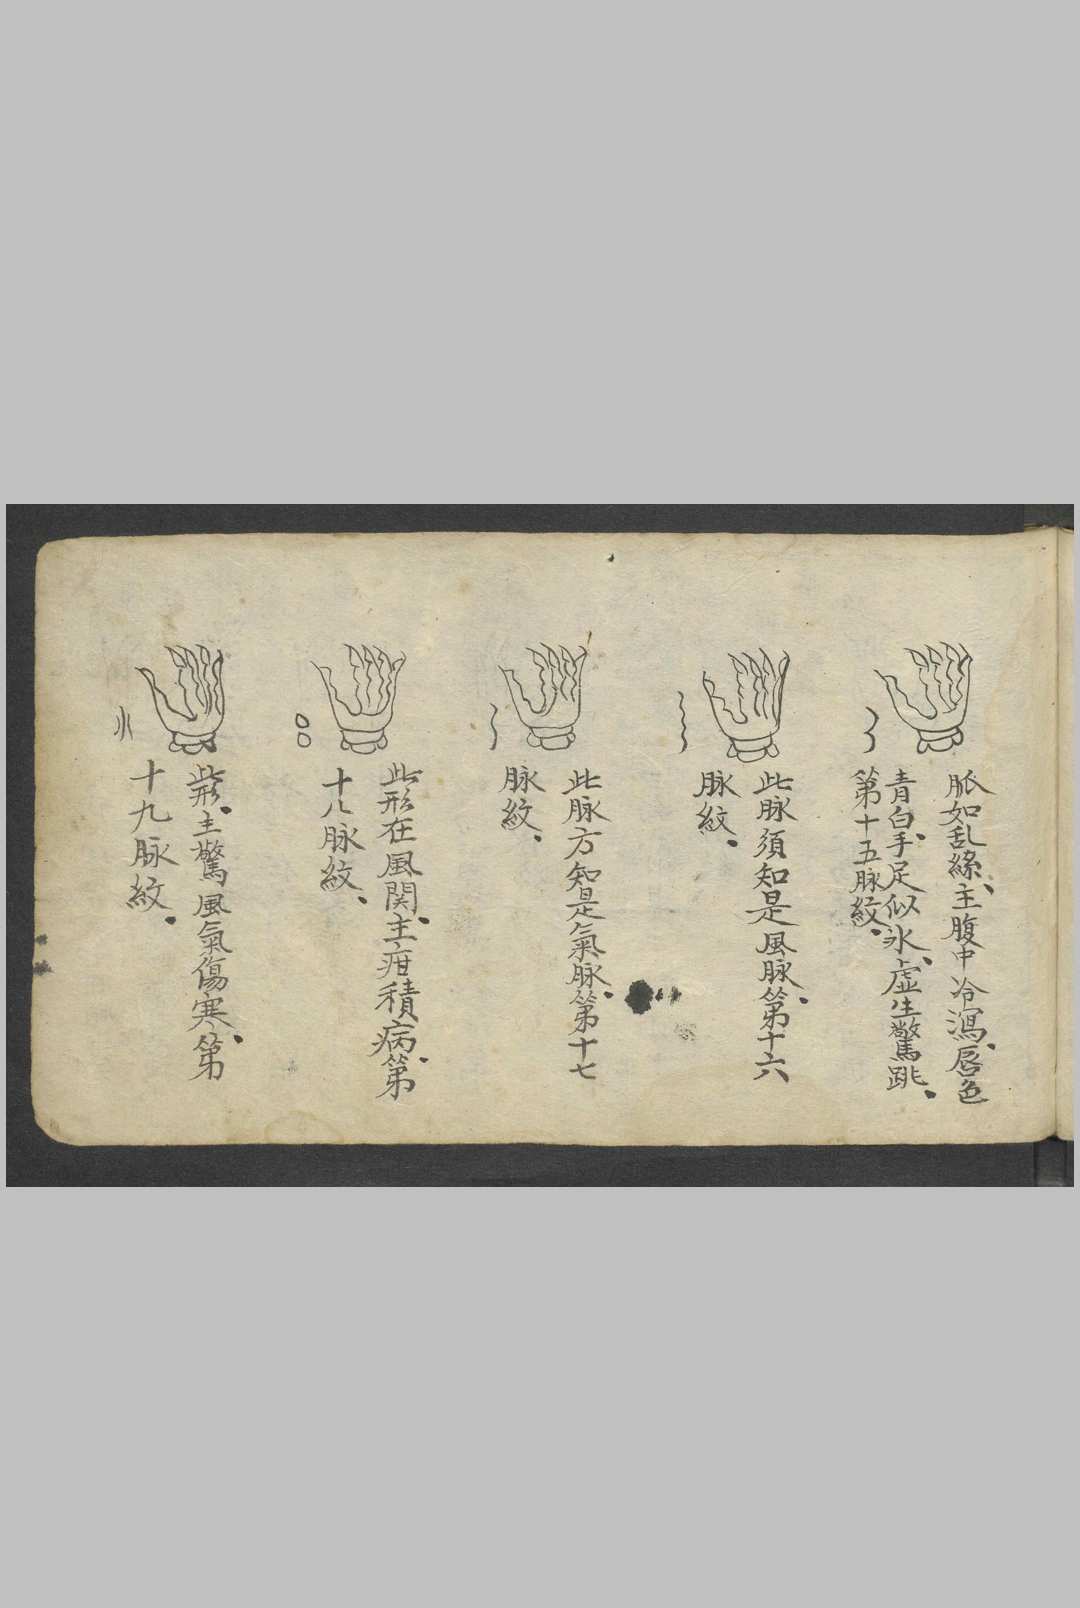 脈如乱絲、主腹中冷瀉、唇色
青白、手足似氷、虛生驚跳、
第十五脉紋、
此脉須知是風脉、第十六
脉紋、
此脉方知是氣脉、第十七
脉紋、
此形在風関、主疳積病、第
十八脉紋、
此形、主驚風氣傷寒、第
十九脉紋、